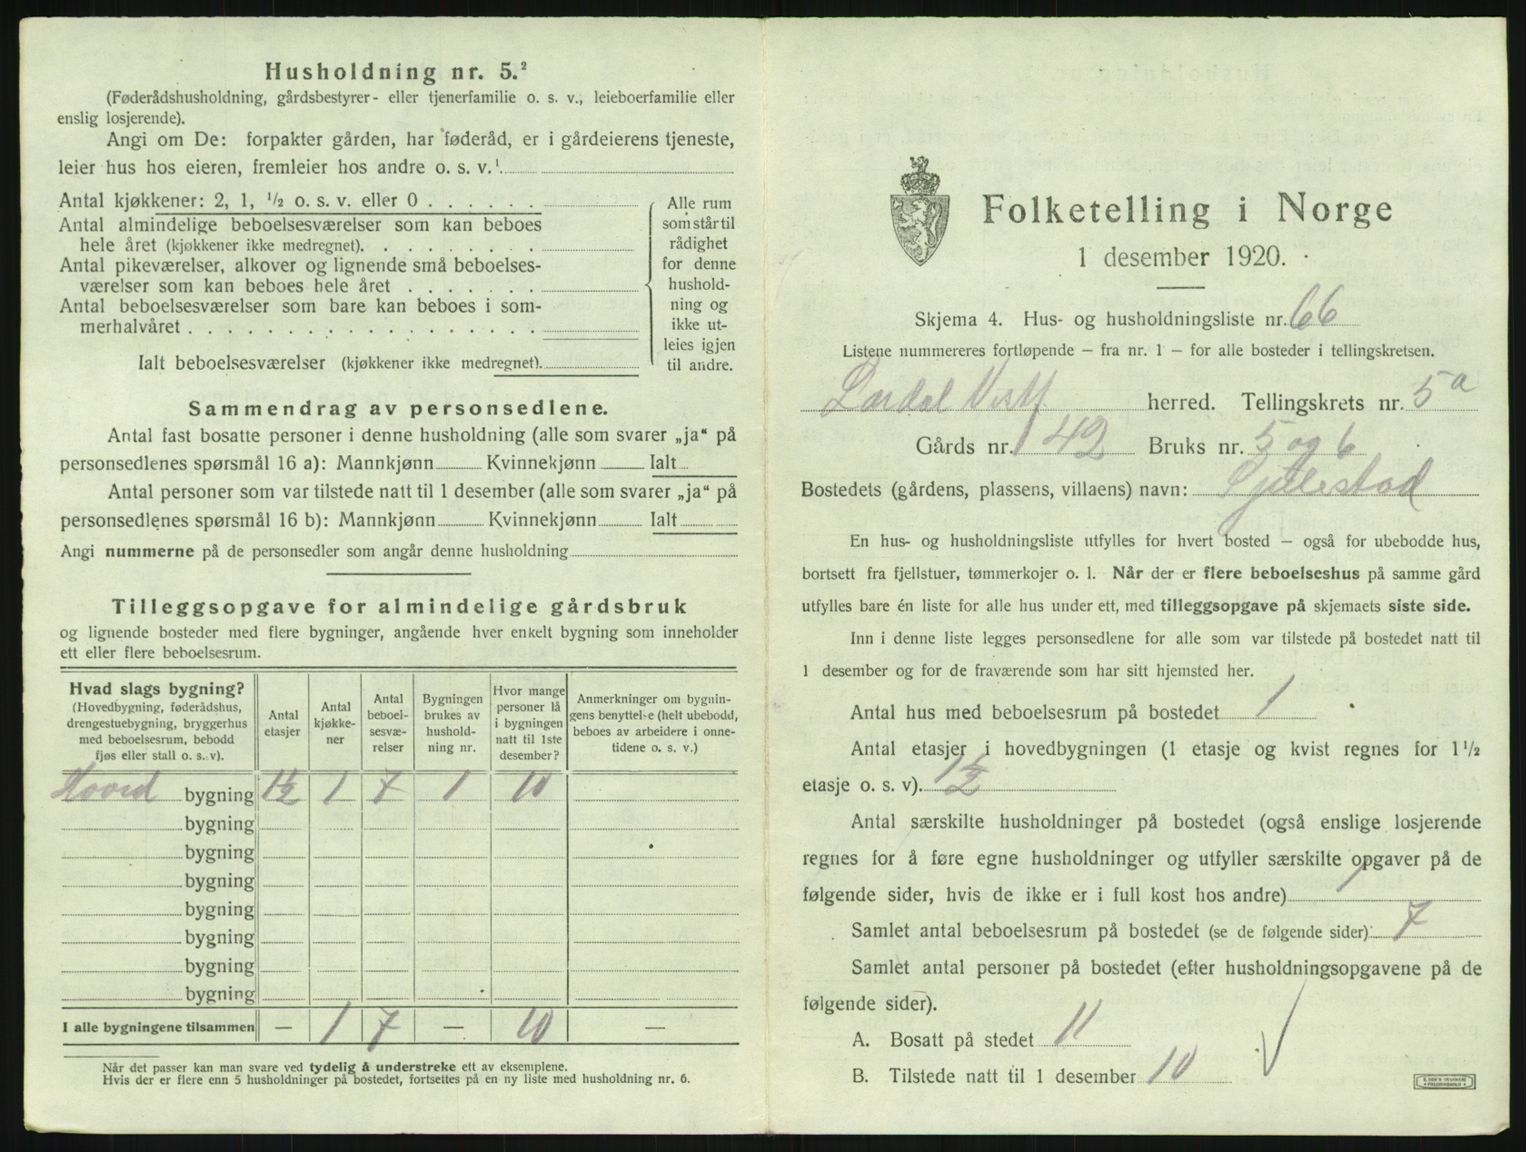 Husholdning nr. 5.²
(Føderådshusholdning, gårdsbestyrer- eller tjenerfamilie o. s. v., leieboerfamilie eller
enslig losjerende).
Angi om De: forpakter gården, har føderåd, er i gårdeierens tjeneste,
leier hus hos eieren, fremleier hos andre o. s. v.¹
Antal kjøkkener: 2, 1, ½ o. s. v. eller 0
Antal almindelige beboelsesværelser som kan beboes
hele året (kjøkkener ikke medregnet).
Antal pikeværelser, alkover og lignende små beboelses-
værelser som kan beboes hele året
Antal beboelsesværelser som bare kan beboes i som-
merhalvåret
Ialt beboelsesværelser (kjøkkener ikke medregnet).
Alle rum
som står til
rådighet
for denne
hushold-
ning og
ikke ut-
leies igjen
til andre.
Sammendrag av personsedlene.
Antal fast bosatte personer i denne husholdning (alle som svarer „ja“ på
personsedlenes spørsmål 16 a): Mannkjønn Kvinnekjønn Ialt
Antal personer som var tilstede natt til 1 desember (alle som svarer „ja“ på
personsedlenes spørsmål 16 b): Mannkjønn Kvinnekjønn Ialt
Angi nummerne på de personsedler som angår denne husholdning
Tilleggsopgave for almindelige gårdsbruk
og lignende bosteder med flere bygninger, angående hver enkelt bygning som inneholder
ett eller flere beboelsesrum.
Hvad slags bygning?
(Hovedbygning, føderådshus,
drengestuebygning, bryggerhus
med beboelsesrum, bebodd
fjøs eller stall o. s. v).
Antal
etasjer
Antal
kjøkke-
ner
Antal
beboel-
sesvæ-
relser
Bygningen
brukes av
hushold-
ning nr.
Hvor mange
personer lå
i bygningen
natt til 1ste
desember?
Anmerkninger om bygnin-
gens benyttelse (helt ubebodd,
beboes av arbeidere i onne-
tidene o. s. v.)
Hoved bygning 1½ 1 7 1 10
bygning
bygning
bygning
bygning
bygning
bygning
bygning
I alle bygningene tilsammen — 1 7 — 10 —
Når det passer kan man svare ved tydelig å understreke ett av eksemplene.
Hvis der er flere enn 5 husholdninger på bostedet, fortsettes på en ny liste med husholdning nr. 6.
Folketelling i Norge
1 desember 1920.
Skjema 4. Hus- og husholdningsliste nr. 66
Listene nummereres fortløpende — fra nr. 1 — for alle bosteder i tellingskretsen.
Lardal Vestf herred. Tellingskrets nr. 5a
Gårds nr. 142 Bruks nr. 5 og 6
Bostedets (gårdens, plassens, villaens) navn: Gjulestad
En hus- og husholdningsliste utfylles for hvert bosted — også for ubebodde hus,
bortsett fra fjellstuer, tømmerkojer o. l. Når der er flere beboelseshus på samme gård
utfylles bare én liste for alle hus under ett, med tilleggsopgave på skjemaets siste side.
Inn i denne liste legges personsedlene for alle som var tilstede på bostedet natt til
1 desember og for de fraværende som har sitt hjemsted her.
Antal hus med beboelsesrum på bostedet 1
Antal etasjer i hovedbygningen (1 etasje og kvist regnes for 1½
etasje o. s. v). 1½
Antal særskilte husholdninger på bostedet (også enslige losjerende
regnes for å føre egne husholdninger og utfyller særskilte opgaver på de
følgende sider, hvis de ikke er i full kost hos andre) 1
Samlet antal beboelsesrum på bostedet (se de følgende sider): 7
Samlet antal personer på bostedet (efter husholdningsopgavene på de
følgende sider).
A. Bosatt på stedet 11
B. Tilstede natt til 1 desember 10